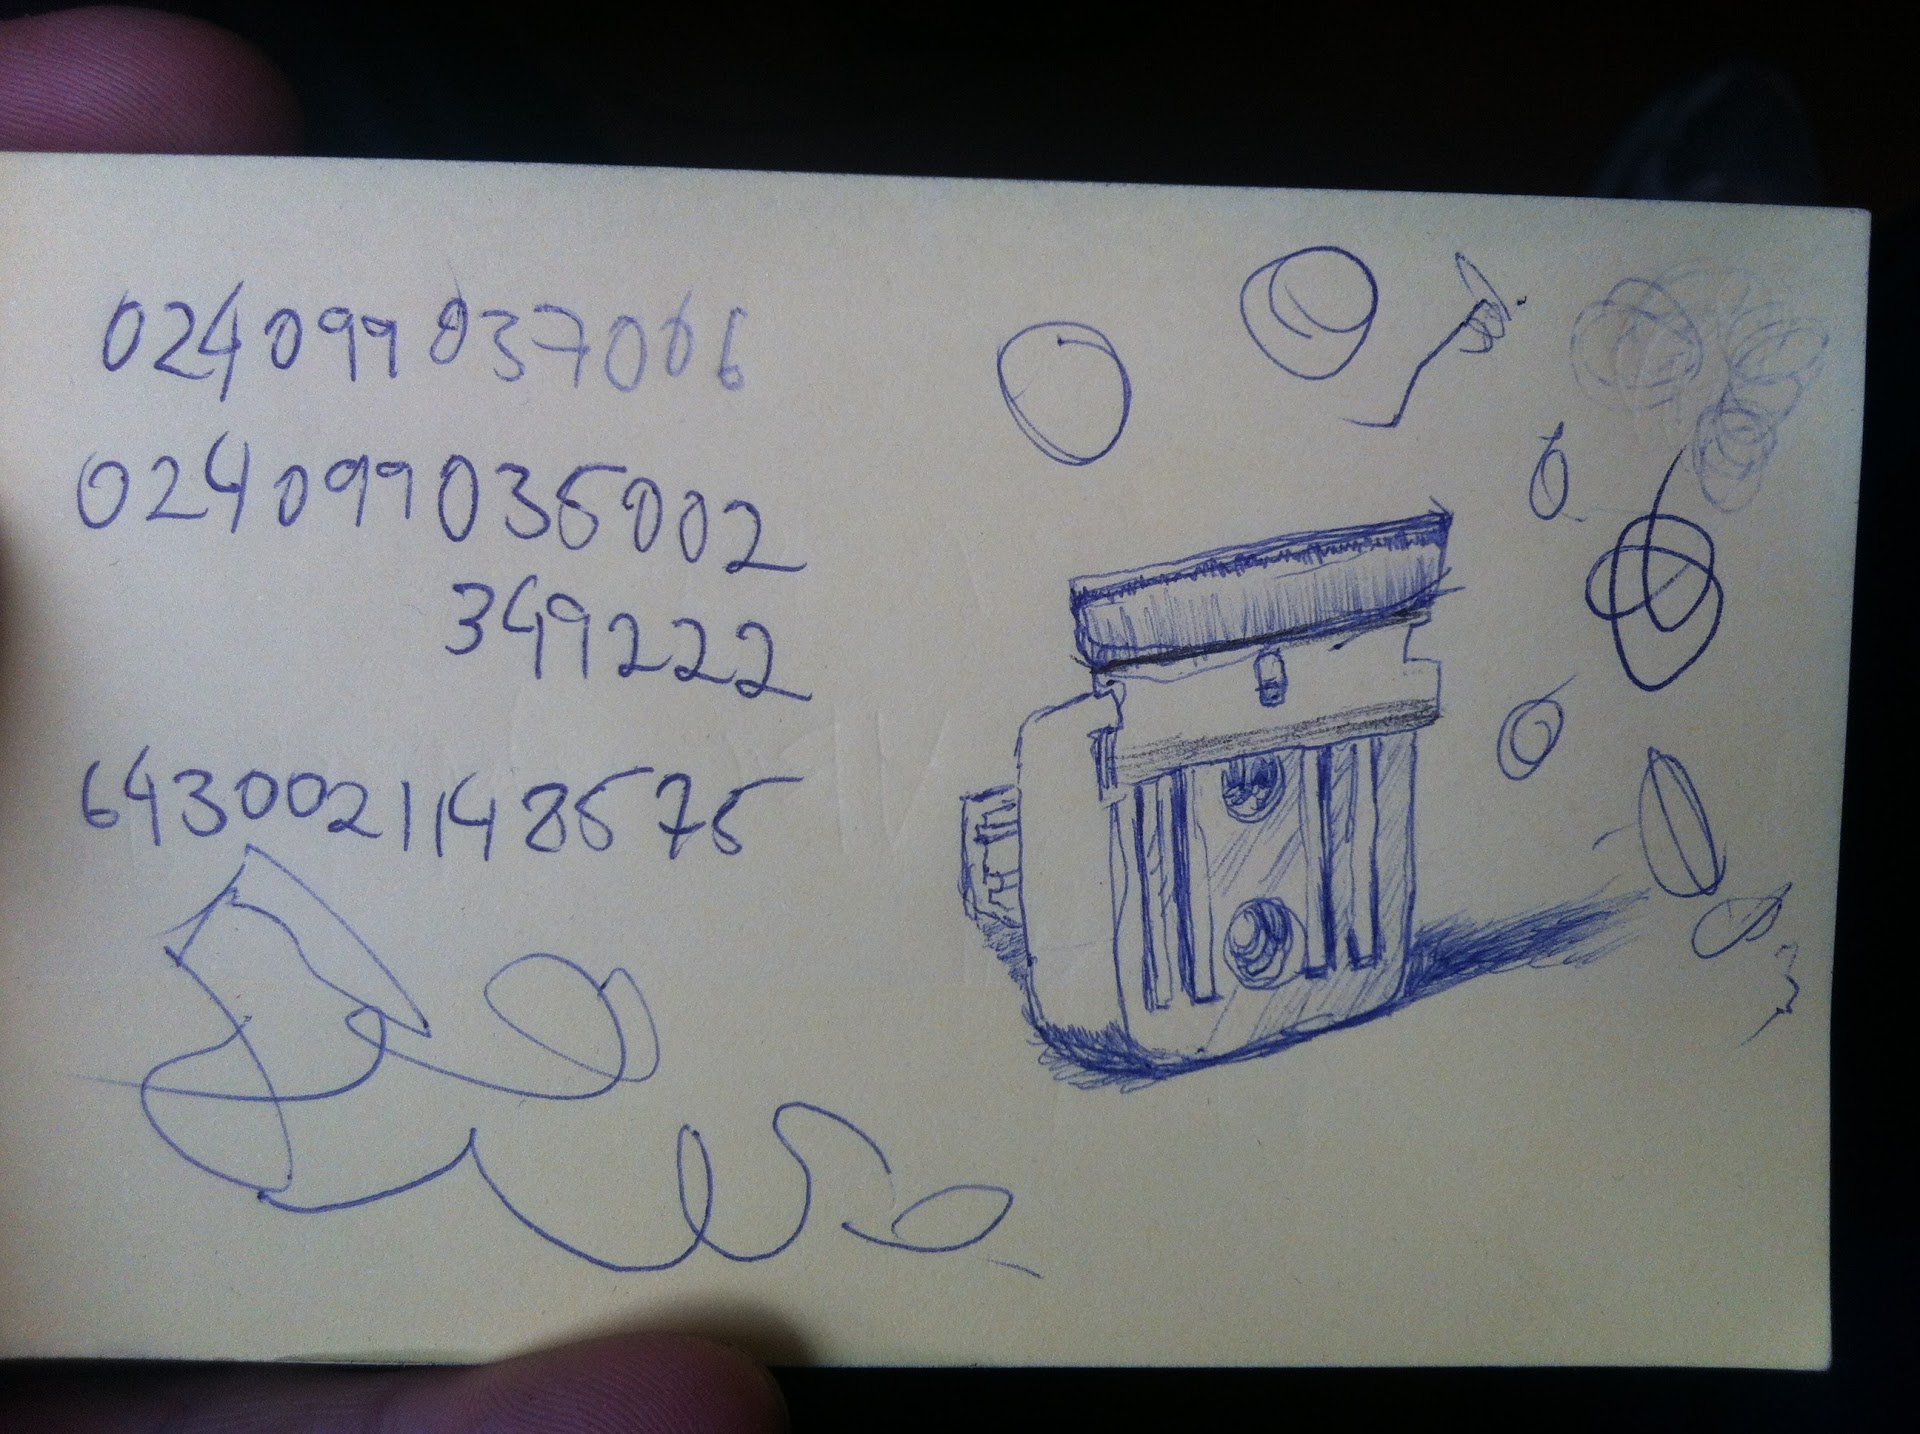 024099037006
024099035002
349222
6430021148575